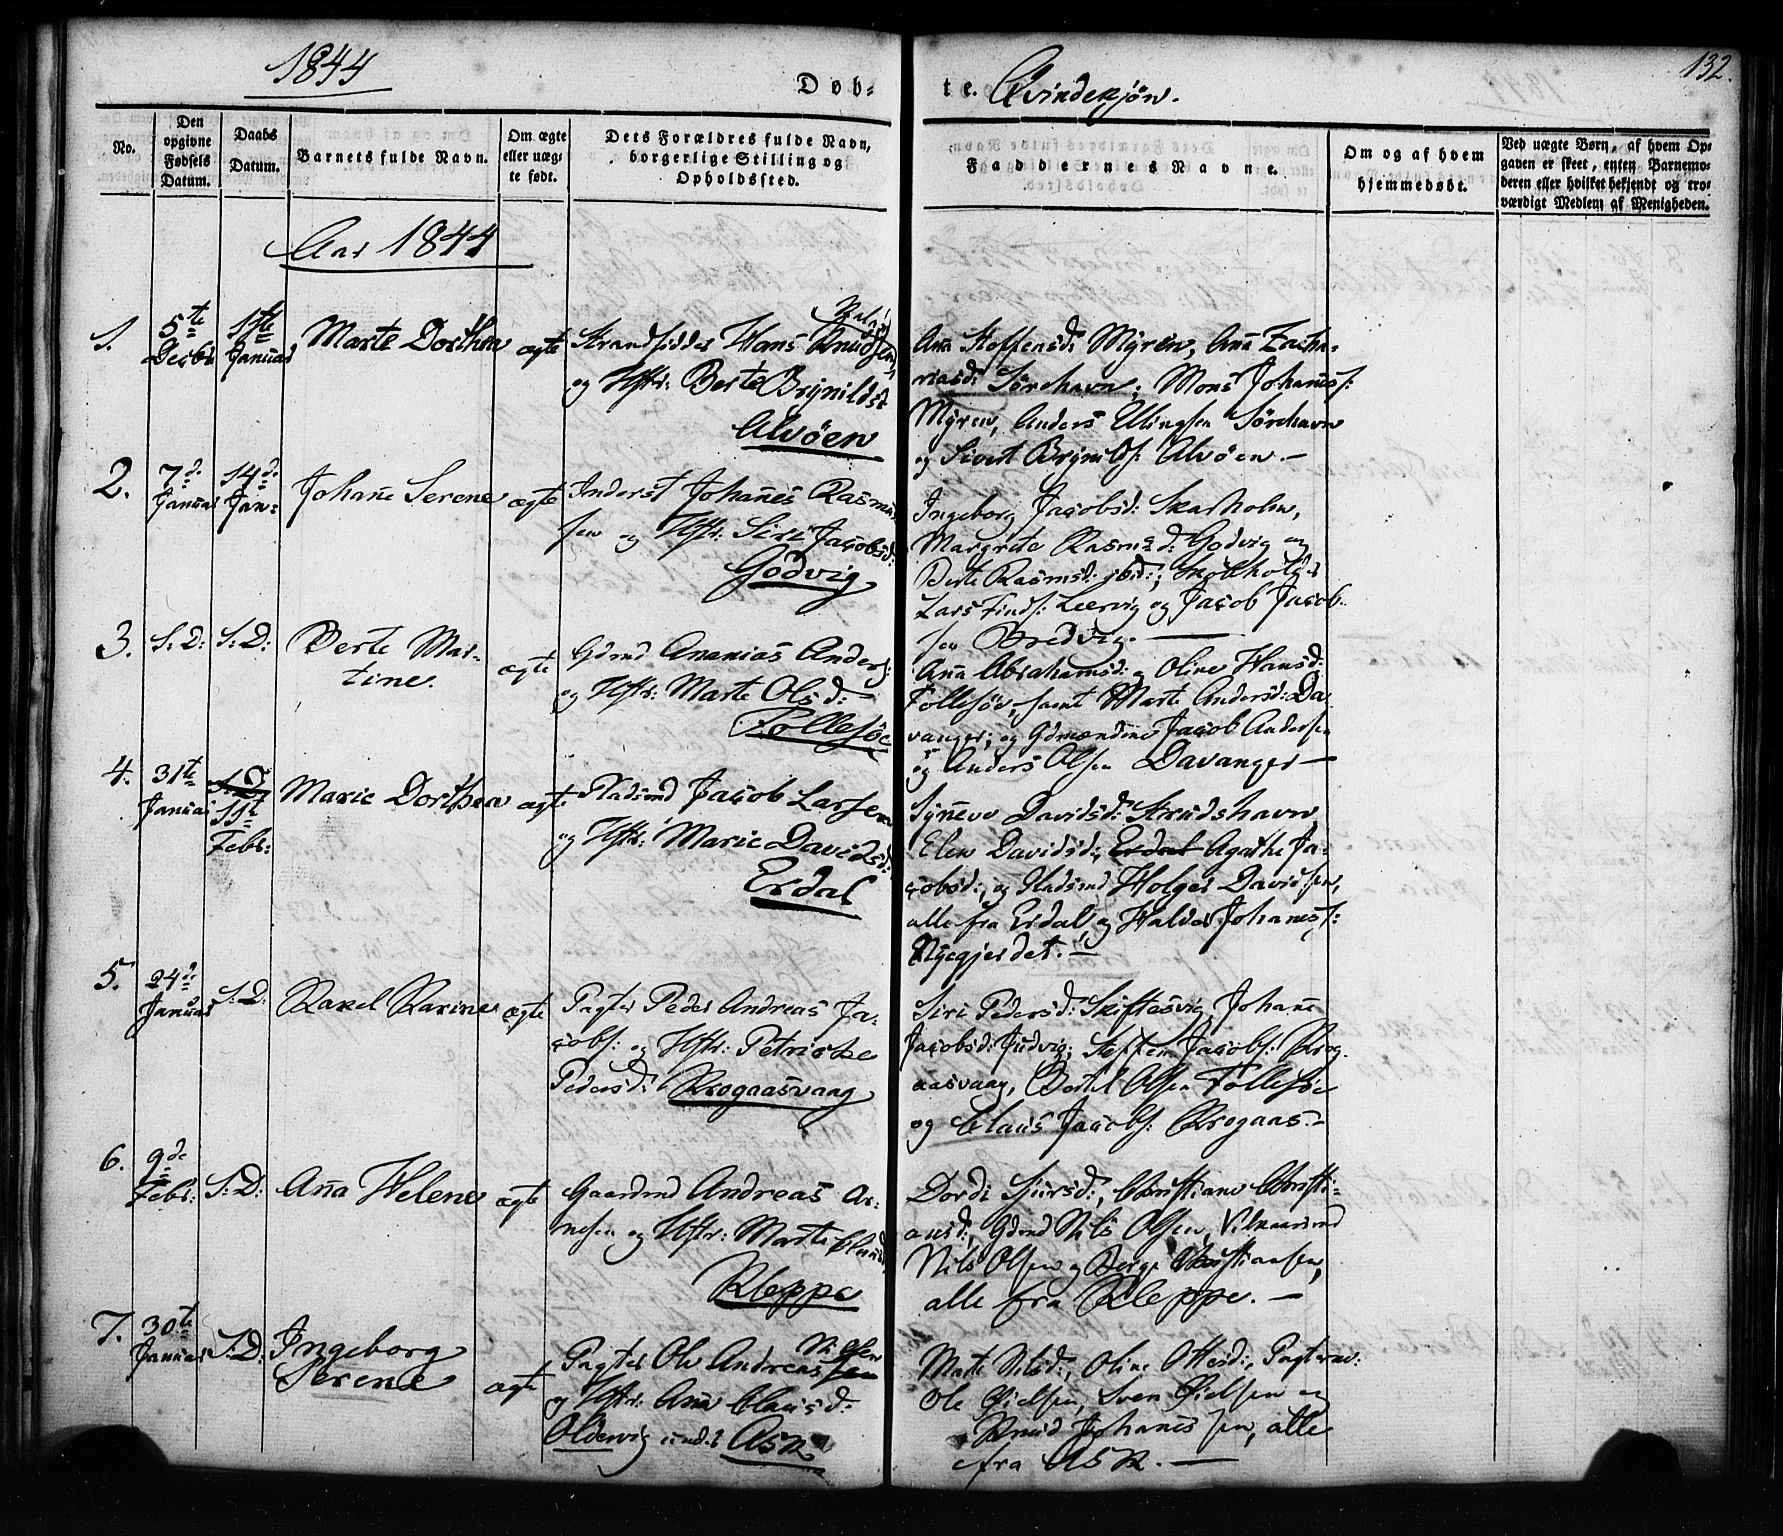 1844
132.
Døb-
te. Qvindekjön.
No.
Den opgivne Fødsels Datum.
Daabs Datum.
Barnets fulde Navn.
Om ægte eller uægte født.
Dets Forældres fulde Navn, borgerlige Stilling og Opholdssted.
Faddernes Navne.
Om og af hvem hjemmedøbt.
Ved uægte Børn, af hvem Opgaven er skeet, enten Barnemoderen eller hvilket bekjendt og troværdigt Medlem af Menigheden.
Aar 1844
1.
5te Decbr
1ste Januar
Marte Dorthea
ægte
Strandsidder Hans Knudsen
og Hstr: Berte Brynildsd
Alvöen
Ana Steffensd: Myren, Ana Zacha-
riasd: Sörehavn; Mons Johanes:
Myren, Anders Ellingsen Sörehavn
og Sivert Brynilds: Alvöen. –
2.
7de Januar
14de Jan:
Johane Serene
ægte
Inderst Johanes Rasmus
sen og Hstr: Siri Jacobsd:
Godvig
Ingeborg Jacobsd: Skarholm,
Margrete Rasmsd: Godvig og
Berte Rasmsd: ibid:;
Lars Finds: Leervig og Jacob Jacob-
sen Bredvig. –
3.
S: D:
S: D:
Berte Mar-
tine.
ægte
Gdmd Ananias Anders:
og Hstr: Marte Olsd:
Follesöe
Ana Abrahamsd: og Oline Hansd:
Follesöe, samt Marte Andersd: Da-
vanger; og Gdmændene Jacob Andersen
og Anders Olsen Davanger –
4.
31te Januar
S: D
11te Febr:
Marie Dorthea
ægte
Pladsmd Jacob Larsen
og Hstr: Marie Davidsd:
Erdal
Synneve Davidsd: Strudshavn,
Elen Davidsd:, Erdal Agathe Ja-
cobsd:, og Pladsmd Holger Davidsen,
alle fra Erdal, og Halvor Johaness:
Nyegjerdet. –
5.
24de Januar
S: D:
Rakel Karine
ægte
Pagter Peder Andreas Ja-
cobs: og Hstr: Petricke
Pedersd: Krogaasvaag
Siri Pedersd: Skiftesvig, Johane
Jacobsd: Judvig; Steffen Jacobs: Krog-
aasvaag, Bertel Olsen Follesöe
og Claus Jacobs: Krogaas. –
6.
9de Febr:
S: D:
Ana Helene
ægte
Gaardmd Andreas Ar-
nesen og Hstr: Marte Clausd
Kleppe
Dordi Sjursd:, Christiane Christi-
ansd:, Gdmd Nils Olsen, Vilkaarsmd
Nils Olsen og Berge Christiansen,
alle fra Kleppe. –
7.
30te Januar
S: D:
Ingeborg
Serene
ægte
Pagter Ole Andreas Nielsen
og Hstr: Ana Clausd:
Oldervig und: Ask
Marte Nilsd:, Oline Ottesd:, Pagterne:
Ole Nielsen, Sven Nielsen og
Knud Johanessen, alle
fra Ask. –